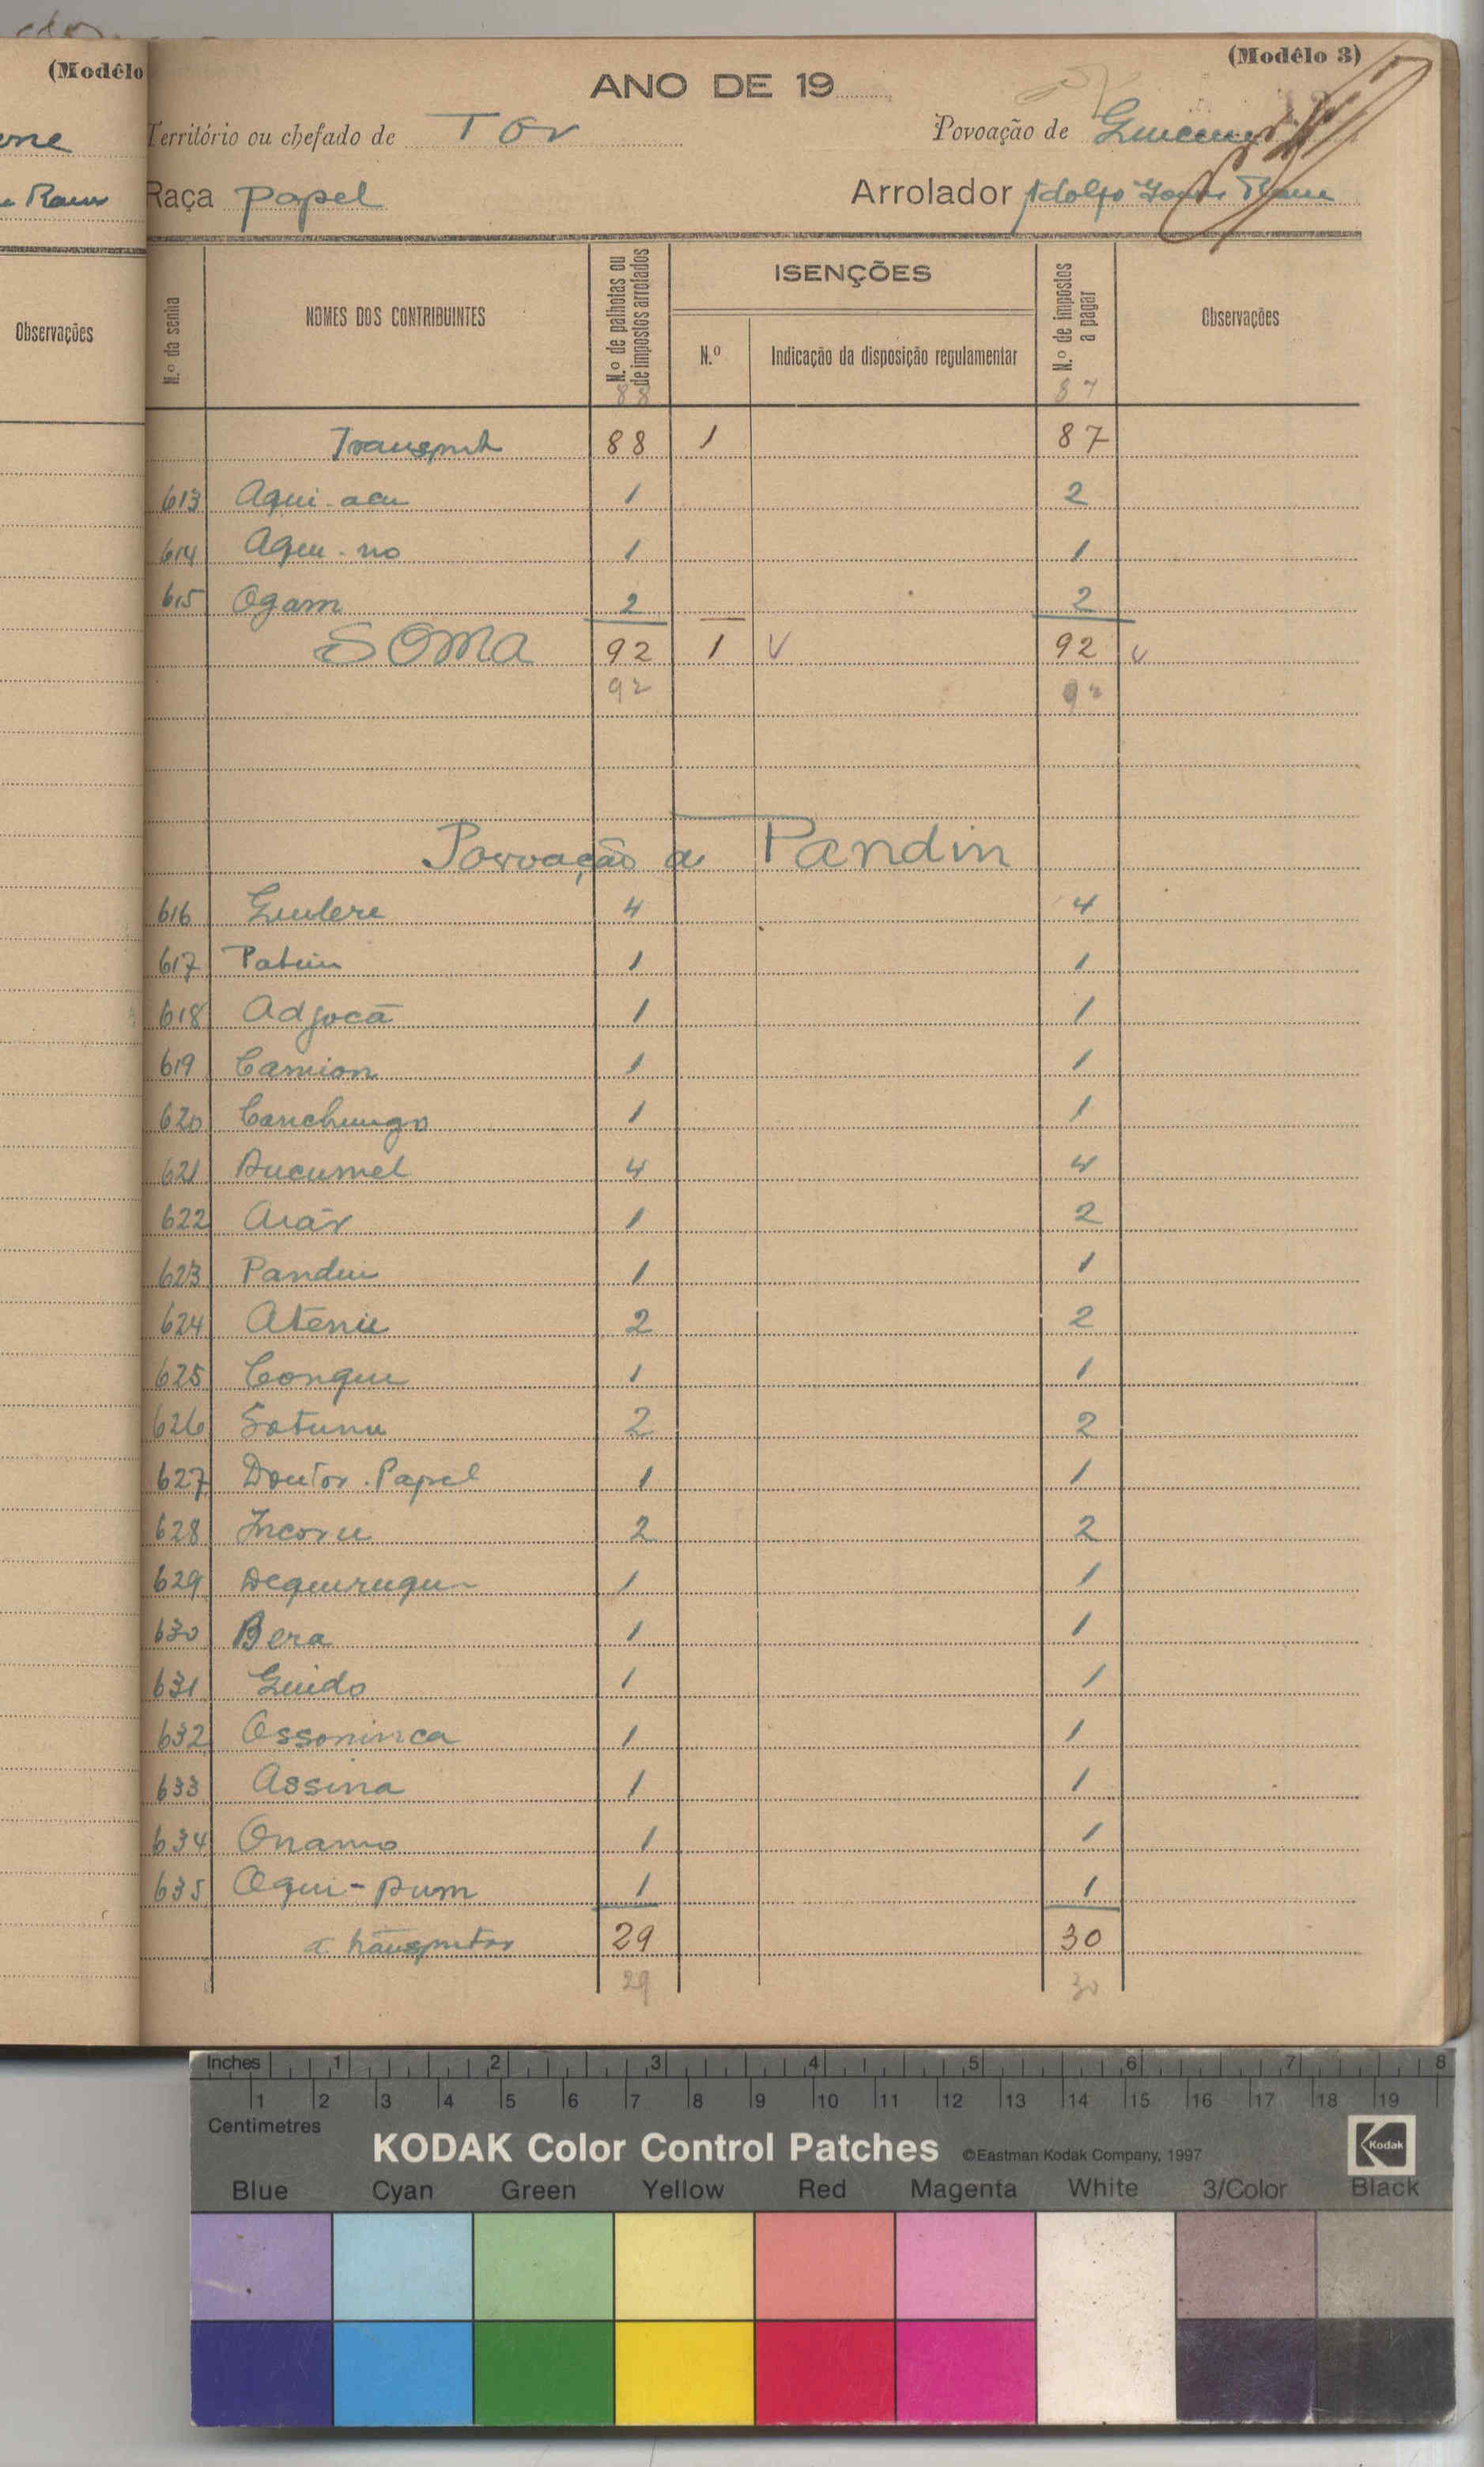 (Modêlo
Observações
(Modêlo 3)
ANO DE 19
Território ou chefado de Tor
Povoação de
Raça Papel
Arrolador Adolfo Gomes
N.º da senha
NOMES DOS CONTRIBUINTES
N.º de palhotas ou de impostos arrolados
ISENÇÕES
N.º
Indicação da disposição regulamentar
N.º de impostos a pagar
Observações
88 87
Transporte 88 1 87
613 Aqui-acu 1 2
614 Aqui-no 1 1
615 Ogam 2 2
SOMA 92 1 V 92 V
92 92
Povoação de Pandim
616 Quilere 4 4
617 Patuin 1 1
618 Adjocā 1 1
619 Camion 1 1
620 Canchungo 1 1
621 Bucumel 4 4
622 1 2
623 Pandim 1 1
624 2 2
625 Conque 1 1
626 2 2
627 Doutor. Papel 1 1
628 2 2
629 1 1
630 Bera 1 1
631 Guido 1 1
632 Ossoninca 1 1
633 Assina 1 1
634 Onamo 1 1
635 Oqui-pum 1 1
a transportar 29 30
29 30
Inches 1 2 3 4 5 6 7 8
1 2 3 4 5 6 7 8 9 10 11 12 13 14 15 16 17 18 19
Centimetres
KODAK Color Control Patches ©Eastman Kodak Company, 1997
Kodak
Blue Cyan Green Yellow Red Magenta White 3/Color Black